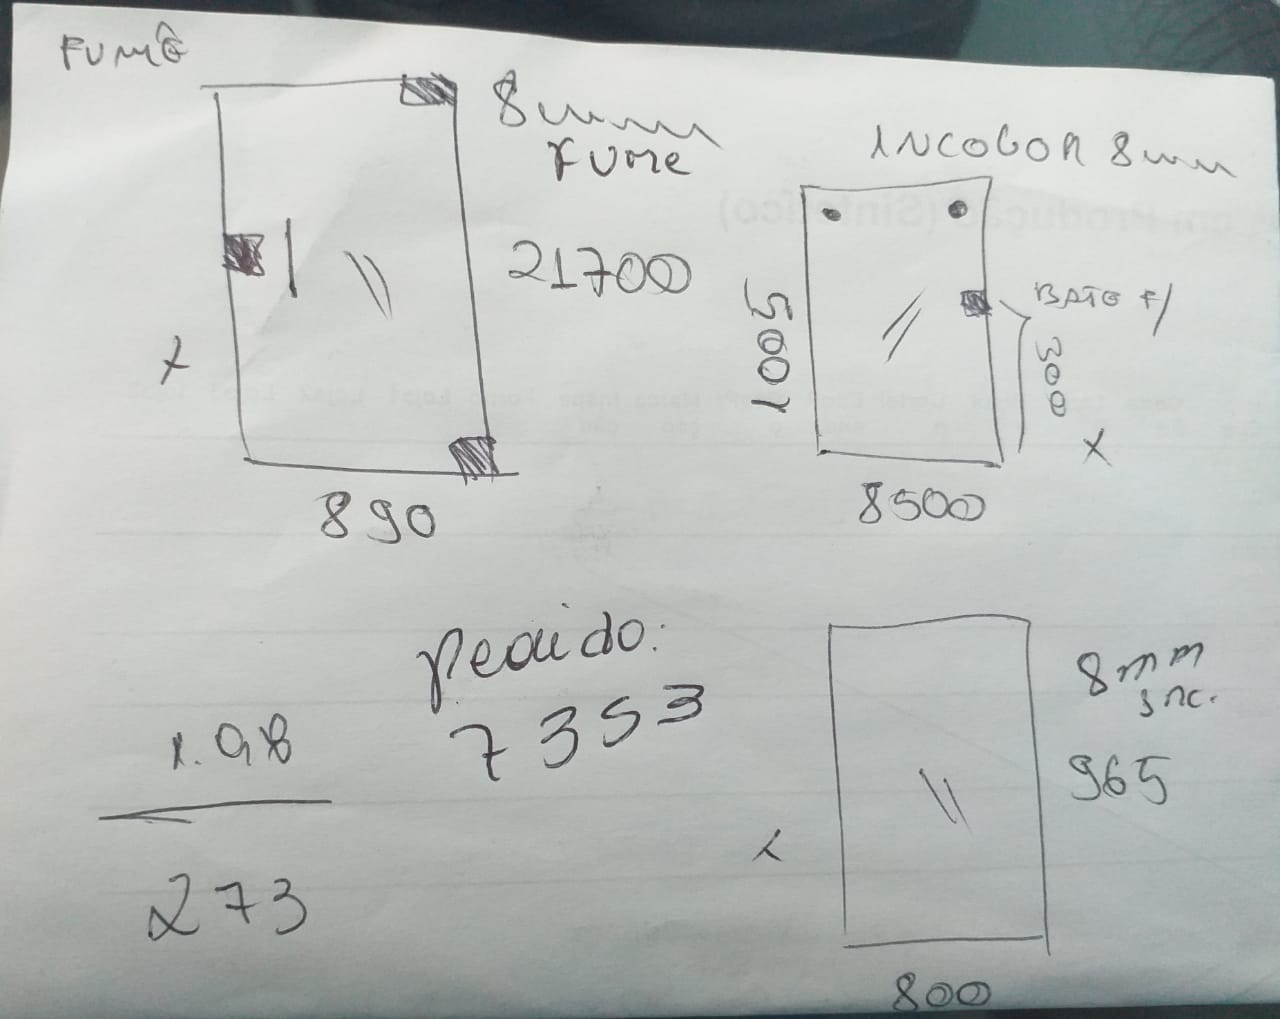 FUMÊ
8mm
FUME
21700
890
INCOLOR 8mm
BATE F/
300
8500
pedido:
7353
1.98
273
8mm
inc.
965
800